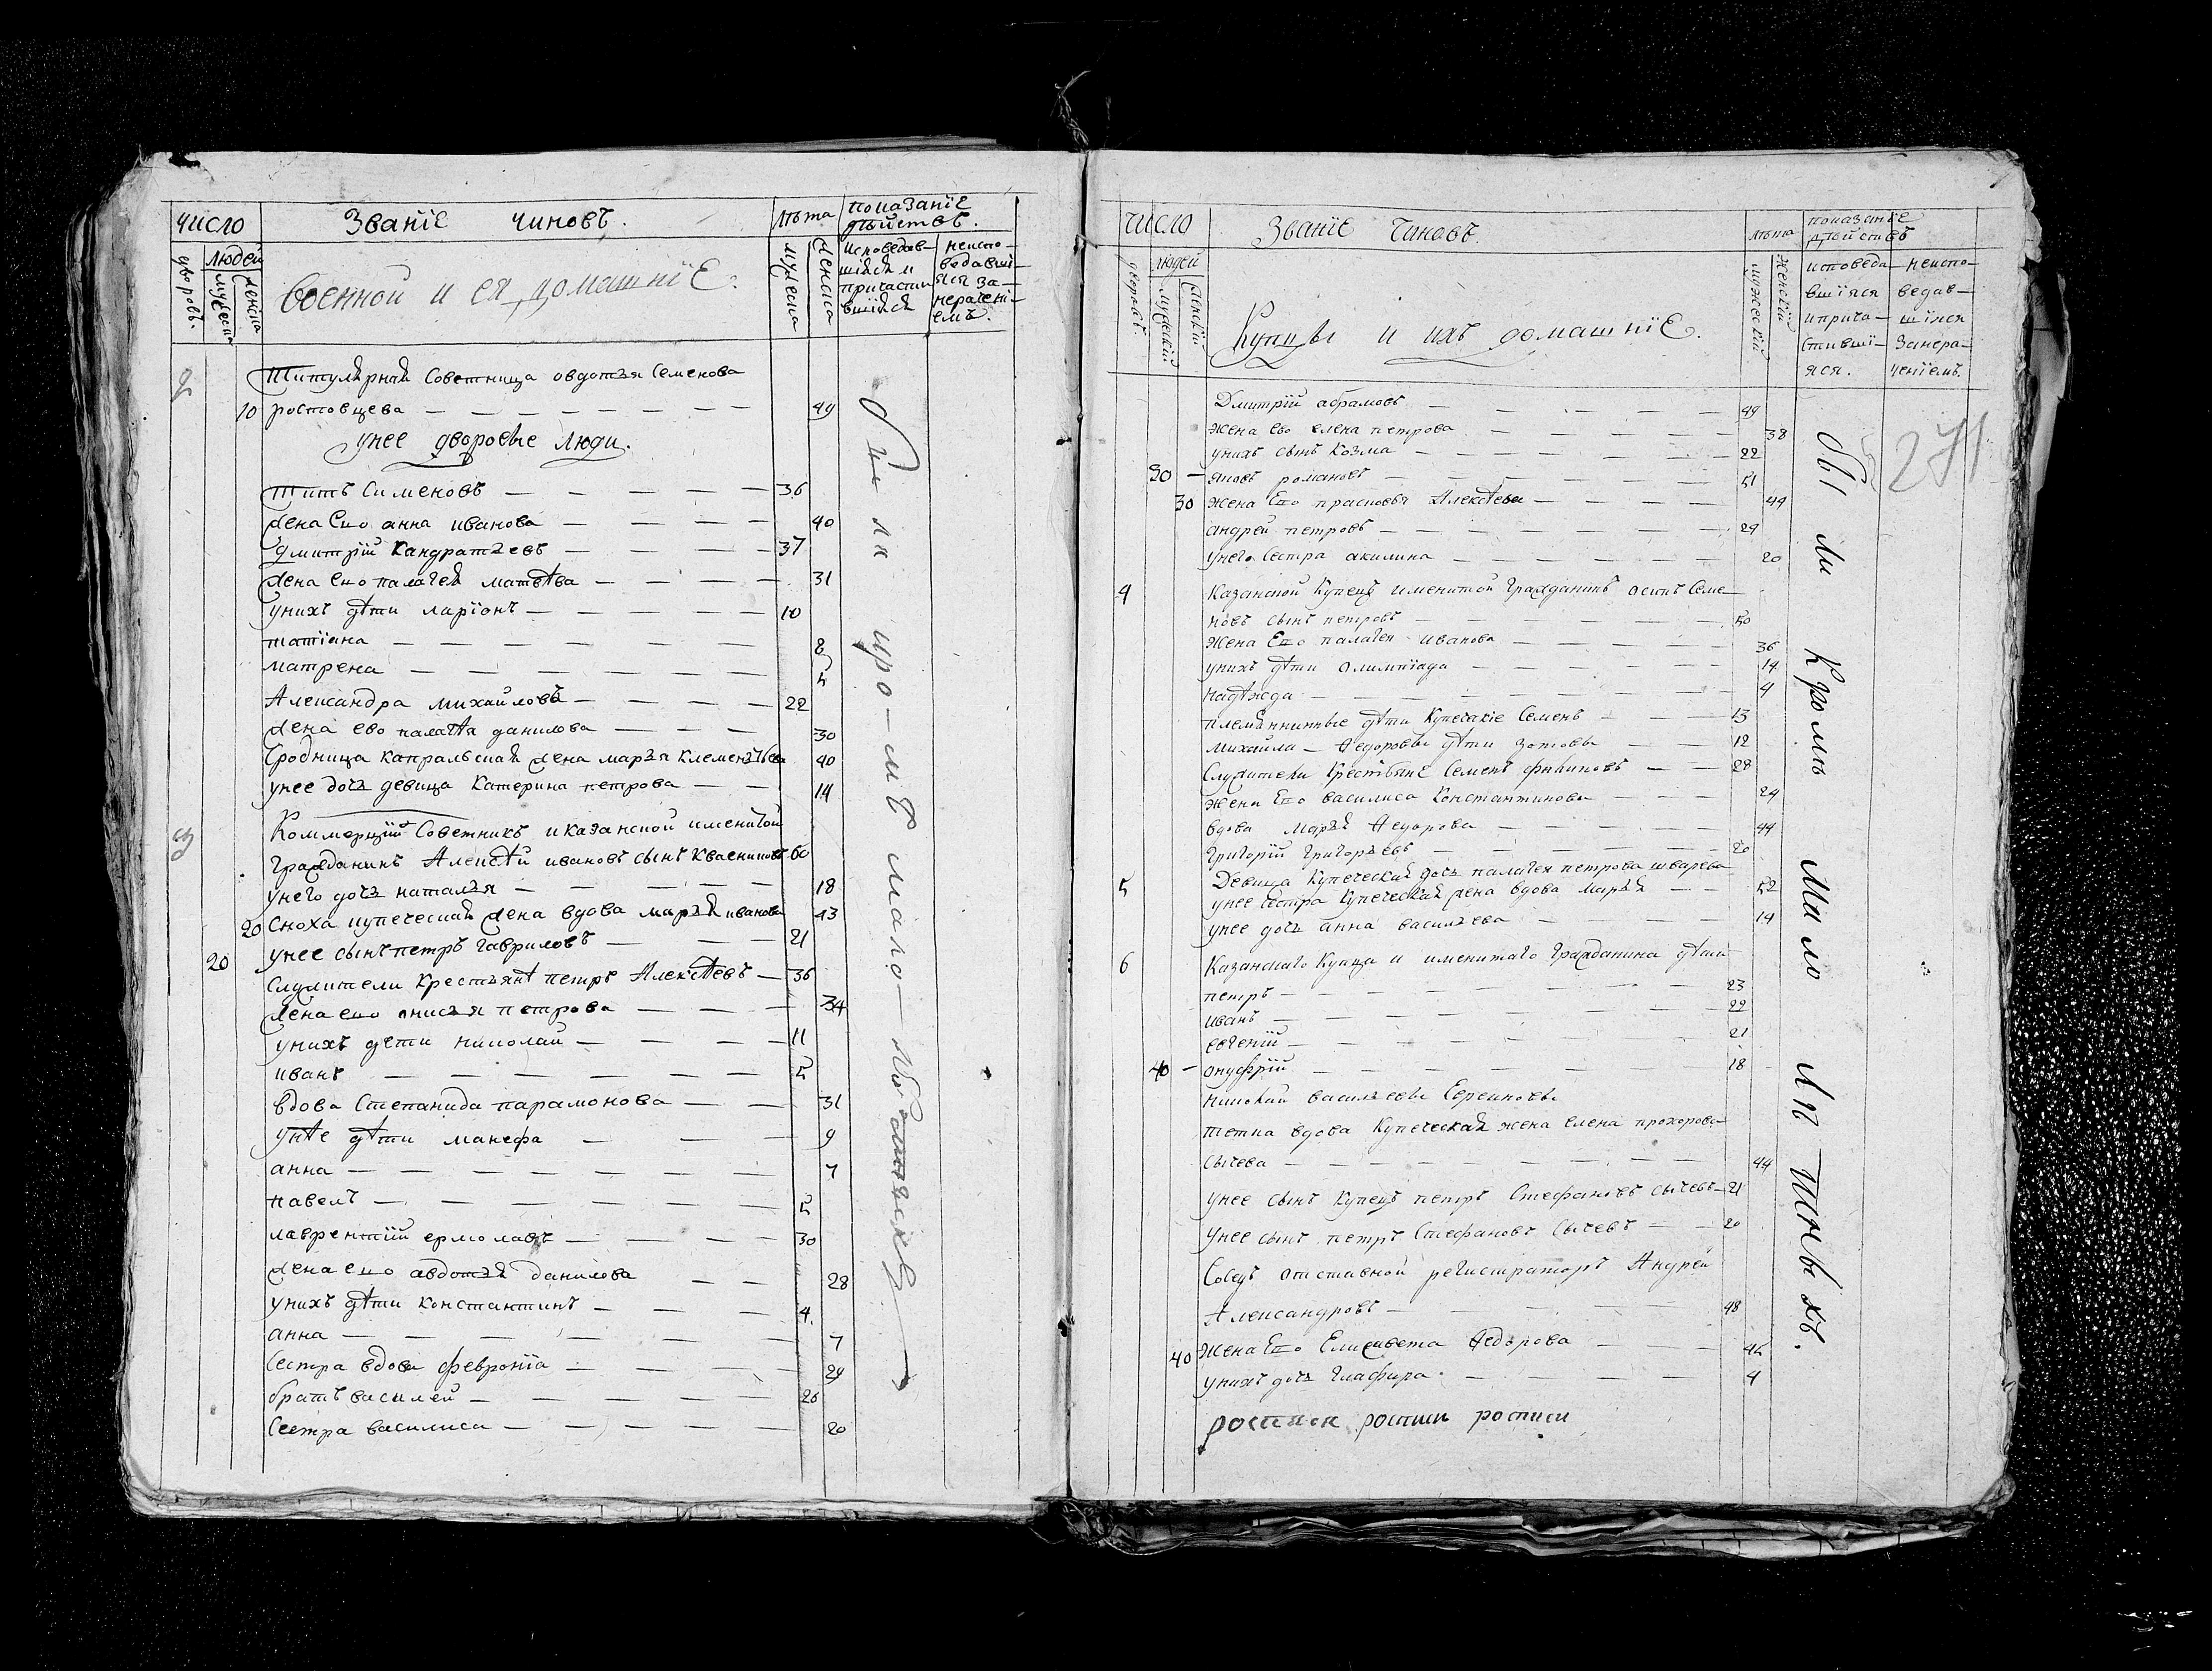 число
Званїе чиновъ.
лѣта
показанїе дѣйствъ.
дворовъ.
людей
мужеска
женска
военной и ея домашнїе.
мужеска
женска
исповедав-
шїяся и
причасти
вшїяся
неиспо-
ведавшї-
яся за-
нерачені-
емъ.
2
Титулярная Советница овдотья Семенова
10 ростовцева — 49
унее дворовые люди.
титъ Сименовъ — 36
жена Ево анна иванова — 40
дмитрїй Кандратьевъ — 37
жена ево палагея матвѣва — 31
унихъ дѣти ларїонъ — 10
татїана — 8
матрена — 5
Александра михайловъ — 22
жена ево палагѣя данилова — 30
Сродница капральская жена марья клеменьтьева 40
унее дочь девица Катерина петрова — 14
3
Коммерцїи Советникъ и казанской имениТой
гражданинъ Алексѣй ивановъ сынъ Квасниковъ 60
унего дочь наталья — 18
20 Сноха купеческая жена вдова марья иванова 43
унее сынъ петръ гавриловъ — 21
20
служители крестьянѣ петръ Алексѣевъ — 36
жена ево анисья петрова — 34
унихъ дети николай — 11
иванъ — 5
вдова Степанида парамонова — 31
унѣе дѣти манефа — 9
анна — 7
павелъ — 5
лаврентїй ермолавъ — 30
жена ево авдотья данилова — 28
унихъ дѣти константинъ — 4
анна — 7
Сестра вдова февронїа — 29
братъ василей — 26
Сестра василиса — 20
число
Званїе Чиновъ.
лѣта
показанїе
дѣйствъ
дворовъ.
людей
мужескїй
женскїй
Купцы и ихъ домашнїе.
мужескїй
женскїй
исповеда-
вшїяся
и прича-
стившї-
яся.
неиспо-
ведав-
шїяся
Занера-
ченїемъ.
271
Дмитрїй абрамовъ — 49
жена ево елена петрова — 38
унихъ сынъ Козма — 22
30 — яковъ романовъ — 51
30 жена Ево прасковья Алексѣева — 44
андрей петровъ — 29
унего Сестра акилина — 20
4
Казанской Купецъ именитой гражданинъ осипъ Семе-
новъ сынъ петровъ — 50
жена Ево палагея иванова — 36
унихъ дѣти Олимпїада — 14
надѣжда — 4
племянниные дѣти Купецкіе Семенъ — 13
михайла — Ѳедоровы дѣти зотовы — 12
Служители Крестьяне Семенъ филиповъ — 28
жена Ево василиса Константинова — 24
вдова Марья Ѳедорова — 44
григорїй григорьевъ — 20
5
Девица Купеческая дочь палагея петрова шварева
унее сестра Купеческая жена вдова Марья — 52
унее дочь анна васильева — 14
6
Казанскаго Купца и именитаго гражданина дѣти
петръ — 23
иванъ — 22
евгенїй — 21
40 — онуфрїй — 18
николай васильевы Евреиновы
тетка вдова Купеческая жена елена прохорова
сычева — 44
унее сынъ Купецъ петръ Стефановъ сычевъ — 21
унее сынъ петръ Стефановъ Сычевъ — 20
Соседъ отставной регистраторъ Андрей
Александровъ — 48
40 Жена Ево Елисавета Ѳедорова — 46
унихъ дочь глафира — 4
росписи росписи росписи
Бы ли Кромѣ Мало Лѣ тныхъ.